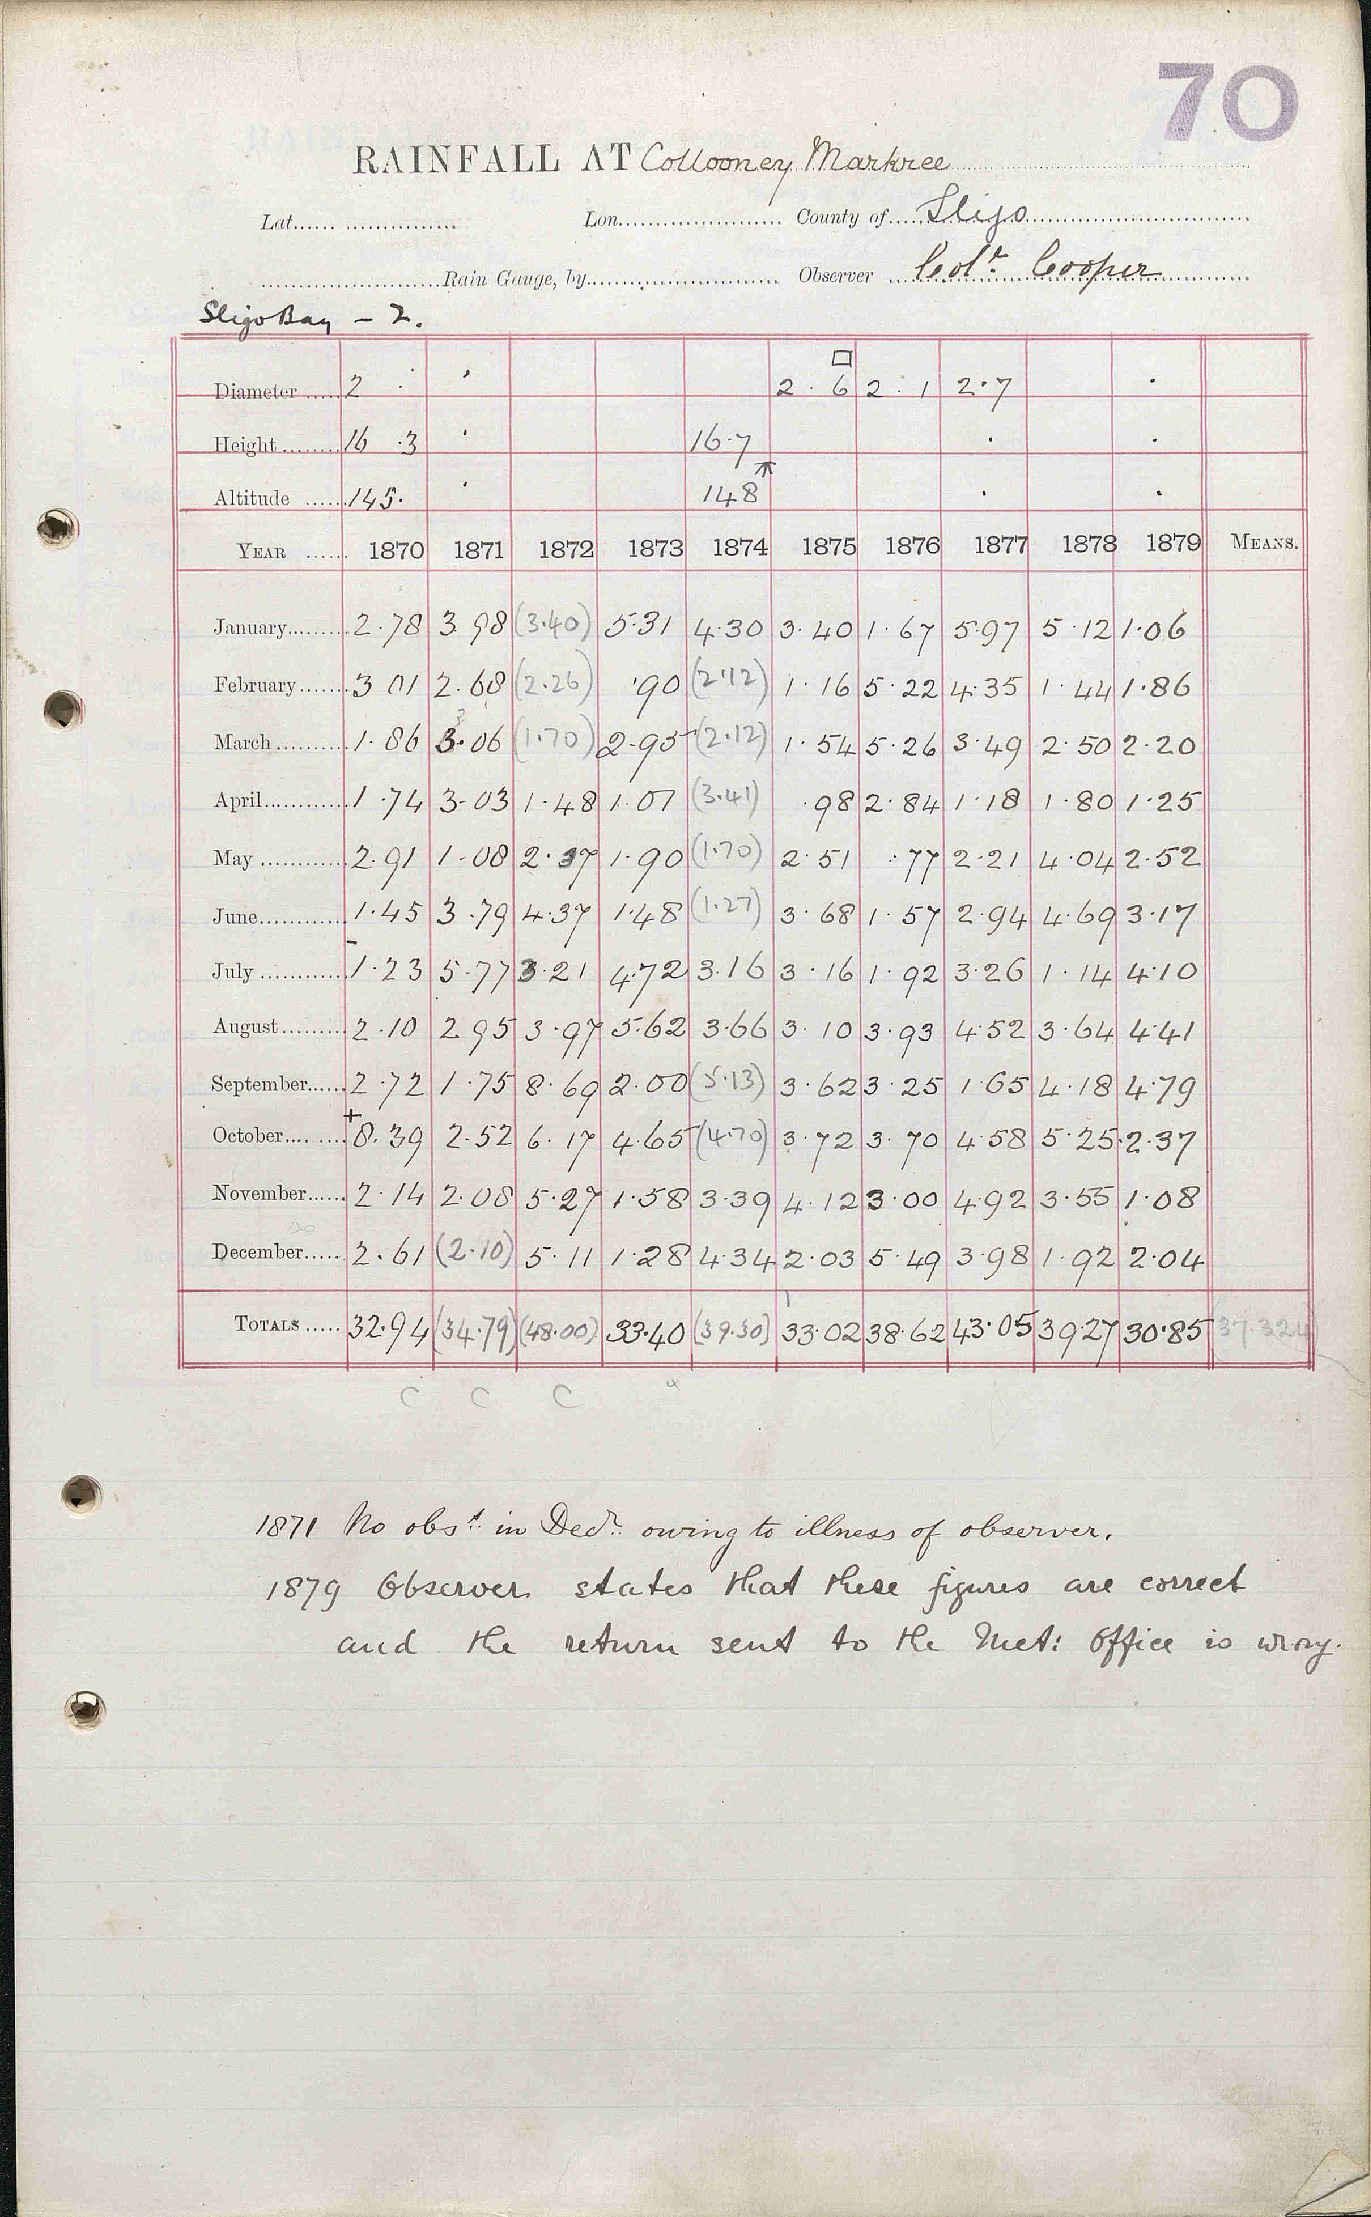 70
RAINFALL AT Collooney Markree
Lat. Lon. County of Sligo
Rain Gauge, by Observer Colr. Cooper
Sligo Bay - 2.
Diameter 2 2.6 2.1 2.7
Height 16.3 16.7
Altitude 145. 148
YEAR 1870 1871 1872 1873 1874 1875 1876 1877 1878 1879 MEANS.
January 2.78 3.98 (3.40) 5.31 4.30 3.40 1.67 5.97 5.12 1.06
February 3.01 2.68 (2.26) .90 (2.12) 1.16 5.22 4.35 1.44 1.86
March 1.86 3.06 (1.70) 2.95 (2.12) 1.54 5.26 3.49 2.50 2.20
April 1.74 3.03 1.48 1.01 (3.41) .98 2.84 1.18 1.80 1.25
May 2.91 1.08 2.37 1.90 (1.70) 2.51 .77 2.21 4.04 2.52
June 1.45 3.79 4.37 1.48 (1.27) 3.68 1.57 2.94 4.69 3.17
July 1.23 5.77 3.21 4.72 3.16 3.16 1.92 3.26 1.14 4.10
August 2.10 2.95 3.97 5.62 3.66 3.10 3.93 4.52 3.64 4.41
September 2.72 1.75 8.69 2.00 (5.13) 3.62 3.25 1.65 4.18 4.79
October + 8.39 2.52 6.17 4.65 (4.70) 3.72 3.70 4.58 5.25 2.37
November 2.14 2.08 5.27 1.58 3.39 4.12 3.00 4.92 3.55 1.08
December 2.61 (2.10) 5.11 1.28 4.34 2.03 5.49 3.98 1.92 2.04
TOTALS 32.94 (34.79) (48.00) 33.40 (39.30) 33.02 38.62 43.05 39.27 30.85 (37.324)
C C C
1871 No obsn. in Decr. owing to illness of observer.
1879 Observer states that these figures are correct
and the return sent to the Met: Office is wrong.